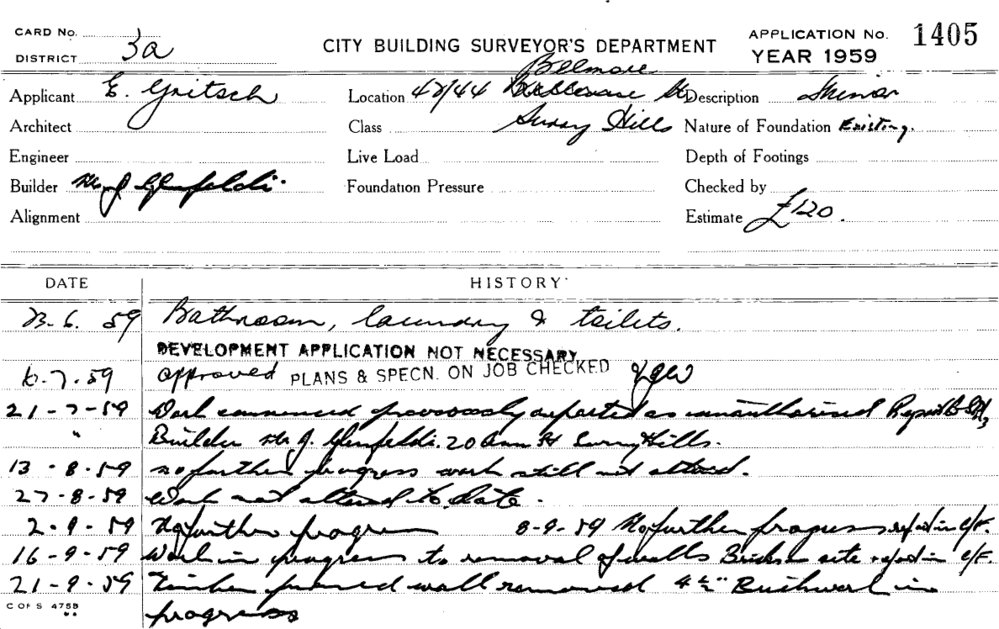 CARD No. 3a CITY BUILDING SURVEYOR'S DEPARTMENT APPLICATION No. 1405
DISTRICT YEAR 1959
Belmore
Applicant E. Gritsch Location 42/44 St Description
Architect Class Surry Hills Nature of Foundation Existing.
Engineer Live Load Depth of Footings
Builder Mr J Glenfeldi. Foundation Pressure Checked by
Alignment Estimate £120.
DATE HISTORY
23.6.59 Bathroom, laundry & toilets.
DEVELOPMENT APPLICATION NOT NECESSARY
6.7.59 approved PLANS & SPECN. ON JOB CHECKED
21-7-59 Work commenced previously reported as unauthorised Report
" Builder Mr J. Glenfeldi. 20 Ann St Surry Hills.
13-8-59 no further progress work still not altered.
27-8-59 Work not altered to date.
2-9-59 No further progress 8-9-59 No further progress
16-9-59 Work in progress to removal of walls Bricks on site
21-9-59 Timber framed wall removed 4½" Brickwork in
progress
C OF S 475B